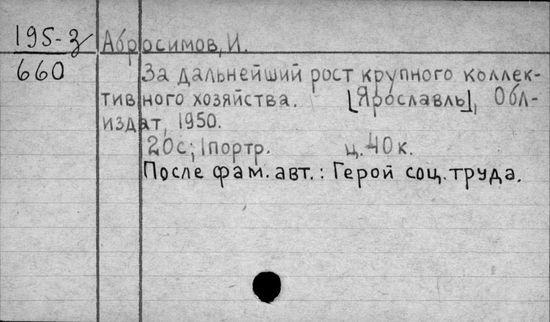 195-3 Абросимов, И.
660 За дальнейший рост крупного коллек-
тивного хозяйства. [Ярославль], Обл-
издат, 1950.
20с; 1портр. ц. 40к.
После фам. авт.: Герой соц. труда.